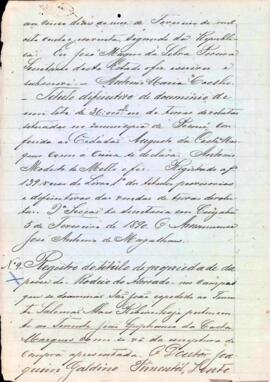 aos cinco dias do mez de Fevereiro de mil oito
cento noventa, segundo da Republica
Eu José Magno da Silva Pereira
Secretario deste Estado o fiz escrever e
subscrevo. Antonio Maria Coelho
Titulo definitivo de dominio de
um lote de de terras devolutas
situadas na de con
ferida ao Cidadão Augusto da Costa Mar
ques como a cima se declara. Antonio
Modesto de Mello o fez. Registrado a fl
139 verso do Livro de titulos provisorios
e definitivos das vendas de terras devolu
tas. 3ª Secção da Secretaria em Cuyabá
5 de Fevereiro de 1890. O Amanuense
José Antonio de Magalhães
Nº 9. Registro do titulo de propriedade da
posse do Rodeio do Alvorado, em Campos
que se denominão São José expedido ao Tenen
te Salomão Alves Ribeiro hoje perten
ao Tenente José Epiphanio da Costa
Marques como se vê da escriptura de
compra apresentada. O Doutor Joa
quim Galdino Pimentel,